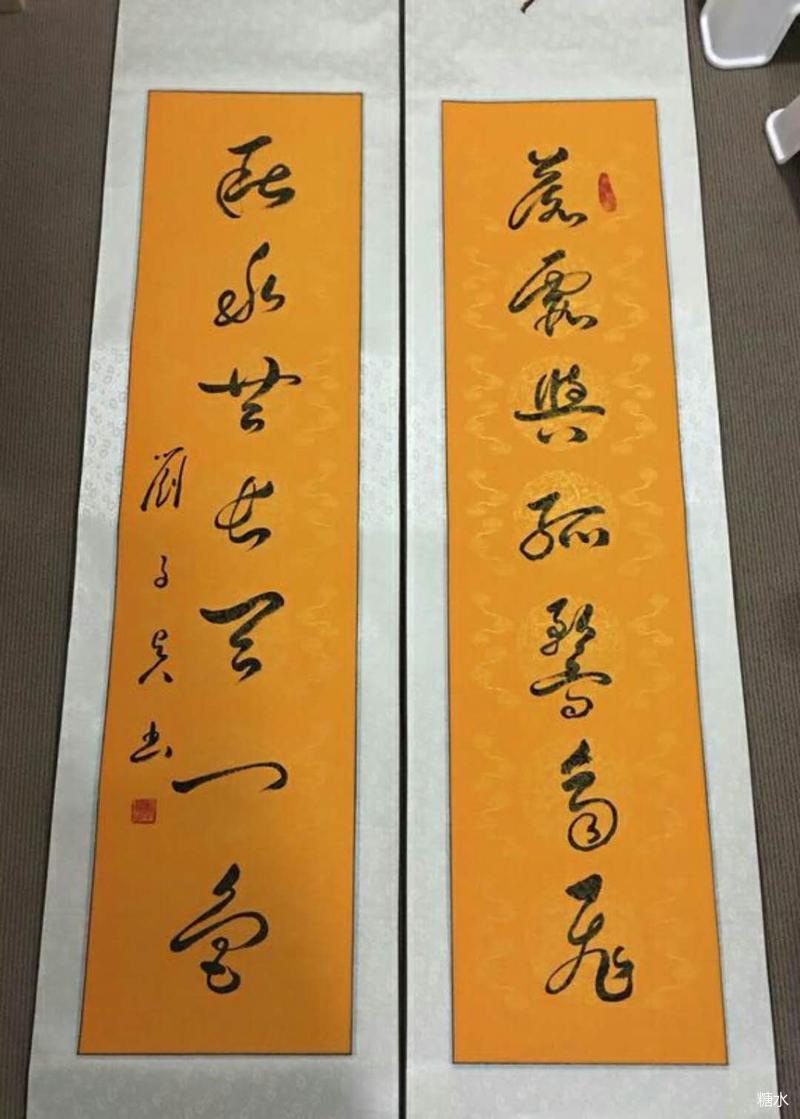 落霞與孤鶩齊飛
秋水共長天一色
劉子書
糖水